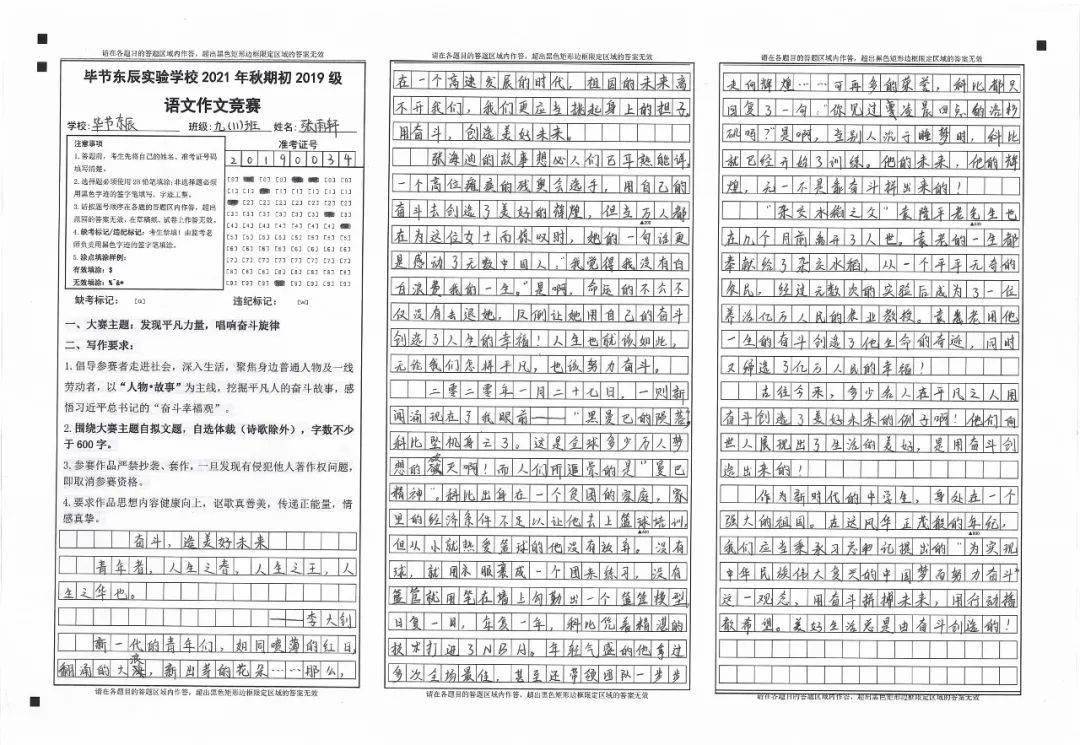 请在各题目的答题区域内作答，超出黑色矩形边框限定区域的答案无效
毕节东辰实验学校 2021 年秋期初 2019 级
语文作文竞赛
学校: 毕节东辰 班级: 九(11)班 姓名: 张雨轩
准考证号
2 0 1 9 0 0 3 4
注意事项
1. 答题前，考生先将自己的姓名、准考证号码
填写清楚。
2. 选择题必须使用 2B 铅笔填涂; 非选择题必须
用黑色字迹的签字笔填写，字迹工整。
3. 请按题号顺序在各题的答题区内作答，超出
范围的答案无效，在草稿纸、试卷上作答无效。
4. 缺考标记/违纪标记: 考生禁填! 由监考老
师负责用黑色字迹的签字笔填涂。
5. 涂点填涂样例:
有效填涂:
无效填涂:
[0] [0] [0] [0] [0]
[1] [1] [1] [1] [1] [1] [1]
[2] [2] [2] [2] [2] [2] [2]
[3] [3] [3] [3] [3] [3] [3]
[4] [4] [4] [4] [4] [4] [4]
[5] [5] [5] [5] [5] [5] [5] [5]
[6] [6] [6] [6] [6] [6] [6] [6]
[7] [7] [7] [7] [7] [7] [7] [7]
[8] [8] [8] [8] [8] [8] [8] [8]
[9] [9] [9] [9] [9] [9] [9]
缺考标记: [Q] 违纪标记: [W]
一、大赛主题: 发现平凡力量，唱响奋斗旋律
二、写作要求:
1. 倡导参赛者走进社会，深入生活，聚焦身边普通人物及一线
劳动者，以“人物•故事”为主线，挖掘平凡人的奋斗故事，感
悟习近平总书记的“奋斗幸福观”。
2. 围绕大赛主题自拟文题，自选体裁（诗歌除外），字数不少
于 600 字。
3. 参赛作品严禁抄袭、套作，一旦发现有侵犯他人著作权问题，
即取消参赛资格。
4. 要求作品思想内容健康向上，讴歌真善美，传递正能量，情
感真挚。
奋斗，造美好未来
青年者，人生之春，人生之王，人
生之华也。
——李大钊
新一代的青年们，如同喷薄的红日，
翻涌的大浪，新出芽的花朵……那么，
请在各题目的答题区域内作答，超出黑色矩形边框限定区域的答案无效
请在各题目的答题区域内作答，超出黑色矩形边框限定区域的答案无效
在一个高速发展的时代，祖国的未来离
不开我们，我们更应当挑起身上的担子
用奋斗，创造美好未来。
张海迪的故事想必人们已耳熟能详。
一个高位瘫痪的残奥会选手，用自己的
奋斗去创造了美好的辉煌，但当万人都
▲200
在为这位女士而惊叹时，她的一句话更
是感动了无数中国人：“我觉得我没有白
白浪费我的一生。”是啊，命运的不公不
仅没有击退她，反倒让她用自己的奋斗
创造了人生的幸福！人生也就该如此，
无论我们怎样平凡，也该努力奋斗。
二零二零年一月二十七日，一则新
闻涌现在了我眼前——“黑曼巴的陨落”
科比坠机身亡了。这是全球多少万人梦
想的破灭啊！而人们所追崇的是“曼巴
精神”。科比出身在一个贫困的家庭，家
里的经济条件不足以让他去上篮球培训，
但从小就热爱篮球的他没有放弃。没有
球，就用衣服裹成一个团来练习，没有
篮筐就用笔在墙上勾勒出一个篮筐模型
日复一日，年复一年，科比凭着精湛的
技术打进了NBA。年轻气盛的他拿过
多次全场最佳，甚至还带领团队一步步
请在各题目的答题区域内作答，超出黑色矩形边框限定区域的答案无效
请在各题目的答题区域内作答，超出黑色矩形边框限定区域的答案无效
走向辉煌……可再多的荣誉，科比都只
回复了一句：“你见过凌晨四点的洛杉
矶吗？”是啊，当别人沉于睡梦时，科比
就已经开始了训练。他的未来，他的辉
煌，无一不是靠奋斗拼出来的！
“杂交水稻之父”袁隆平老先生也
在几个月前离开了人世。袁老的一生都
奉献给了杂交水稻，从一个平平无奇的
农民，经过无数次的实验后成为了一位
养活亿万人民的农业教授。袁老用他
一生的奋斗创造了他生命的奇迹，同时
又缔造了亿万人民的幸福！
古往今来，多少名人在平凡之人用
奋斗创造了美好未来的例子啊！他们向
世人展现出了生活的美好，是用奋斗创
造出来的！
作为新时代的中学生，身处在一个
强大的祖国。在这风华正茂般的年纪，
▲800
我们应当秉承习总书记提出的“为实现
中华民族伟大复兴的中国梦而努力奋斗”
这一观念，用奋斗拼搏未来，用行动播
散希望。美好生活总是由奋斗创造的！
请在各题目的答题区域内作答，超出黑色矩形边框限定区域的答案无效